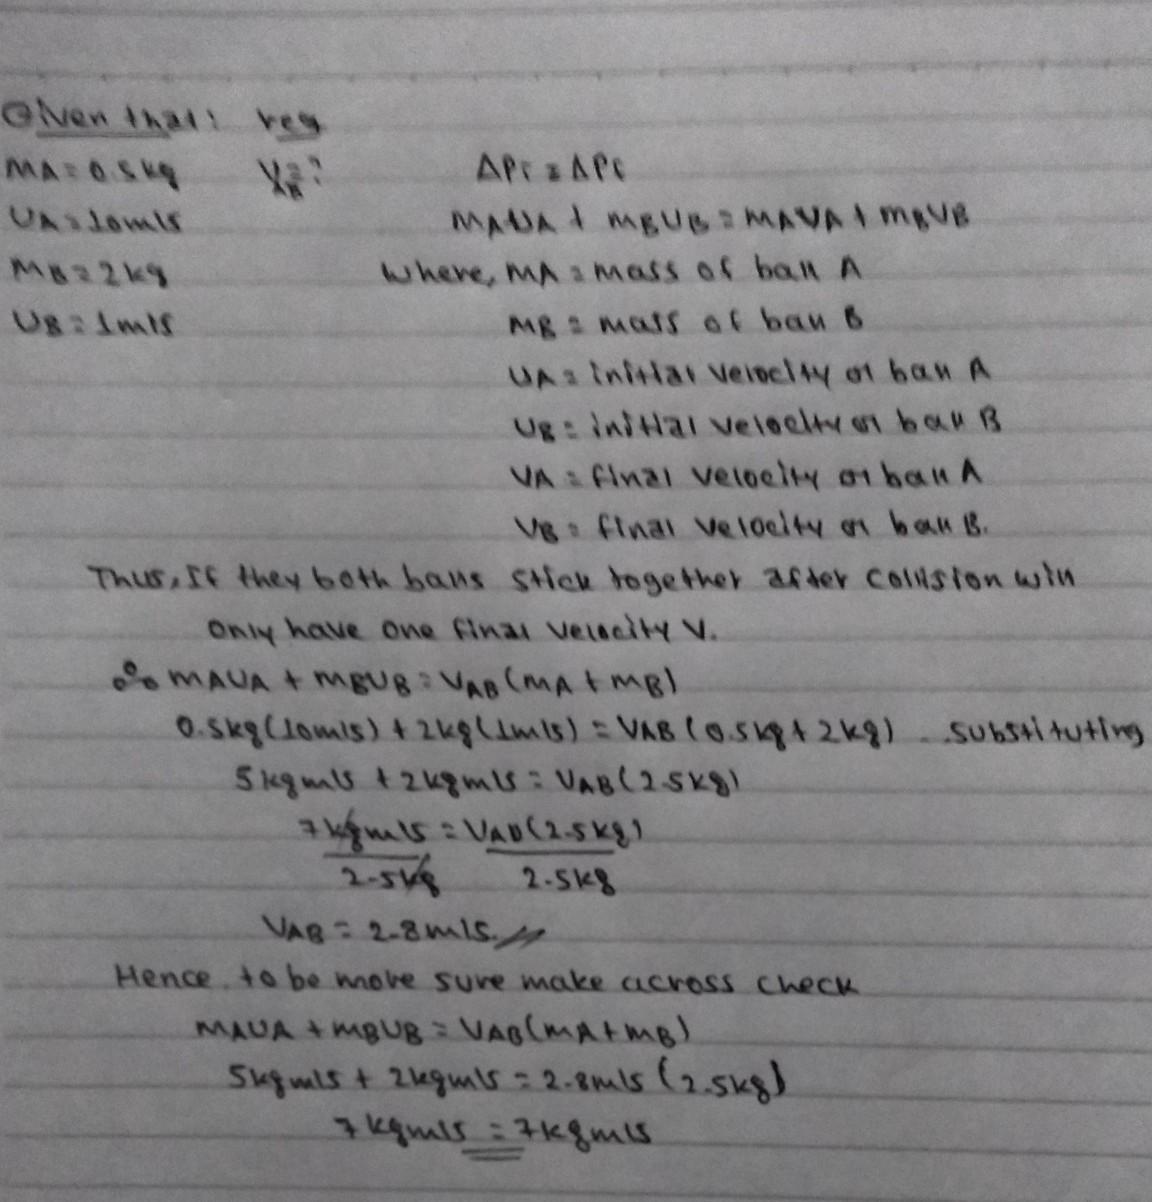 Given that: req
MA = 0.5kg V=? ΔPi = ΔPf
AB
UA = 10m/s MAUA + MBUB = MAVA + MBVB
MB = 2kg where, MA = mass of ball A
UB = 1m/s MB = mass of ball B
UA = initial velocity of ball A
UB = initial velocity of ball B
VA = final velocity of ball A
VB = final velocity of ball B.
Thus, If they both balls stick together after collision will
only have one final velocity V.
∴ MAUA + MBUB = VAB(MA + MB)
0.5kg(10m/s) + 2kg(1m/s) = VAB(0.5kg + 2kg) ...substituting
5kgm/s + 2kgm/s = VAB(2.5kg)
7kgm/s = VAB(2.5kg)
2.5kg 2.5kg
VAB = 2.8m/s.
Hence, to be more sure make across check
MAUA + MBUB = VAB(MA + MB)
5kgm/s + 2kgm/s = 2.8m/s (2.5kg)
7kgm/s = 7kgm/s